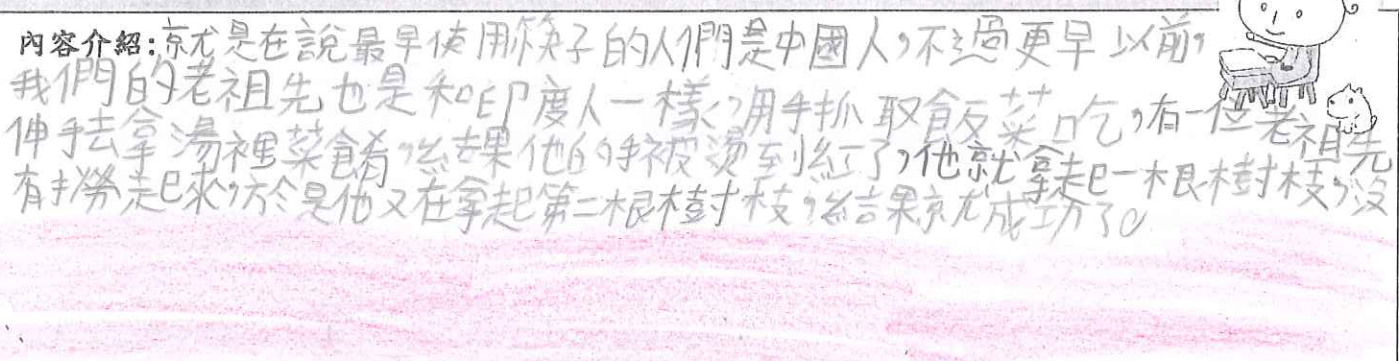 內容介紹:就是在說最早使用筷子的人們是中國人,不過更早以前,
我們的老祖先也是和印度人一樣,用手抓取飯菜吃,有一位老祖先
伸手去拿湯裡菜餚,結果他的手被燙到紅了,他就拿起一根樹枝,沒
有撈起來,於是他又在拿起第二根樹枝,結果就成功了。